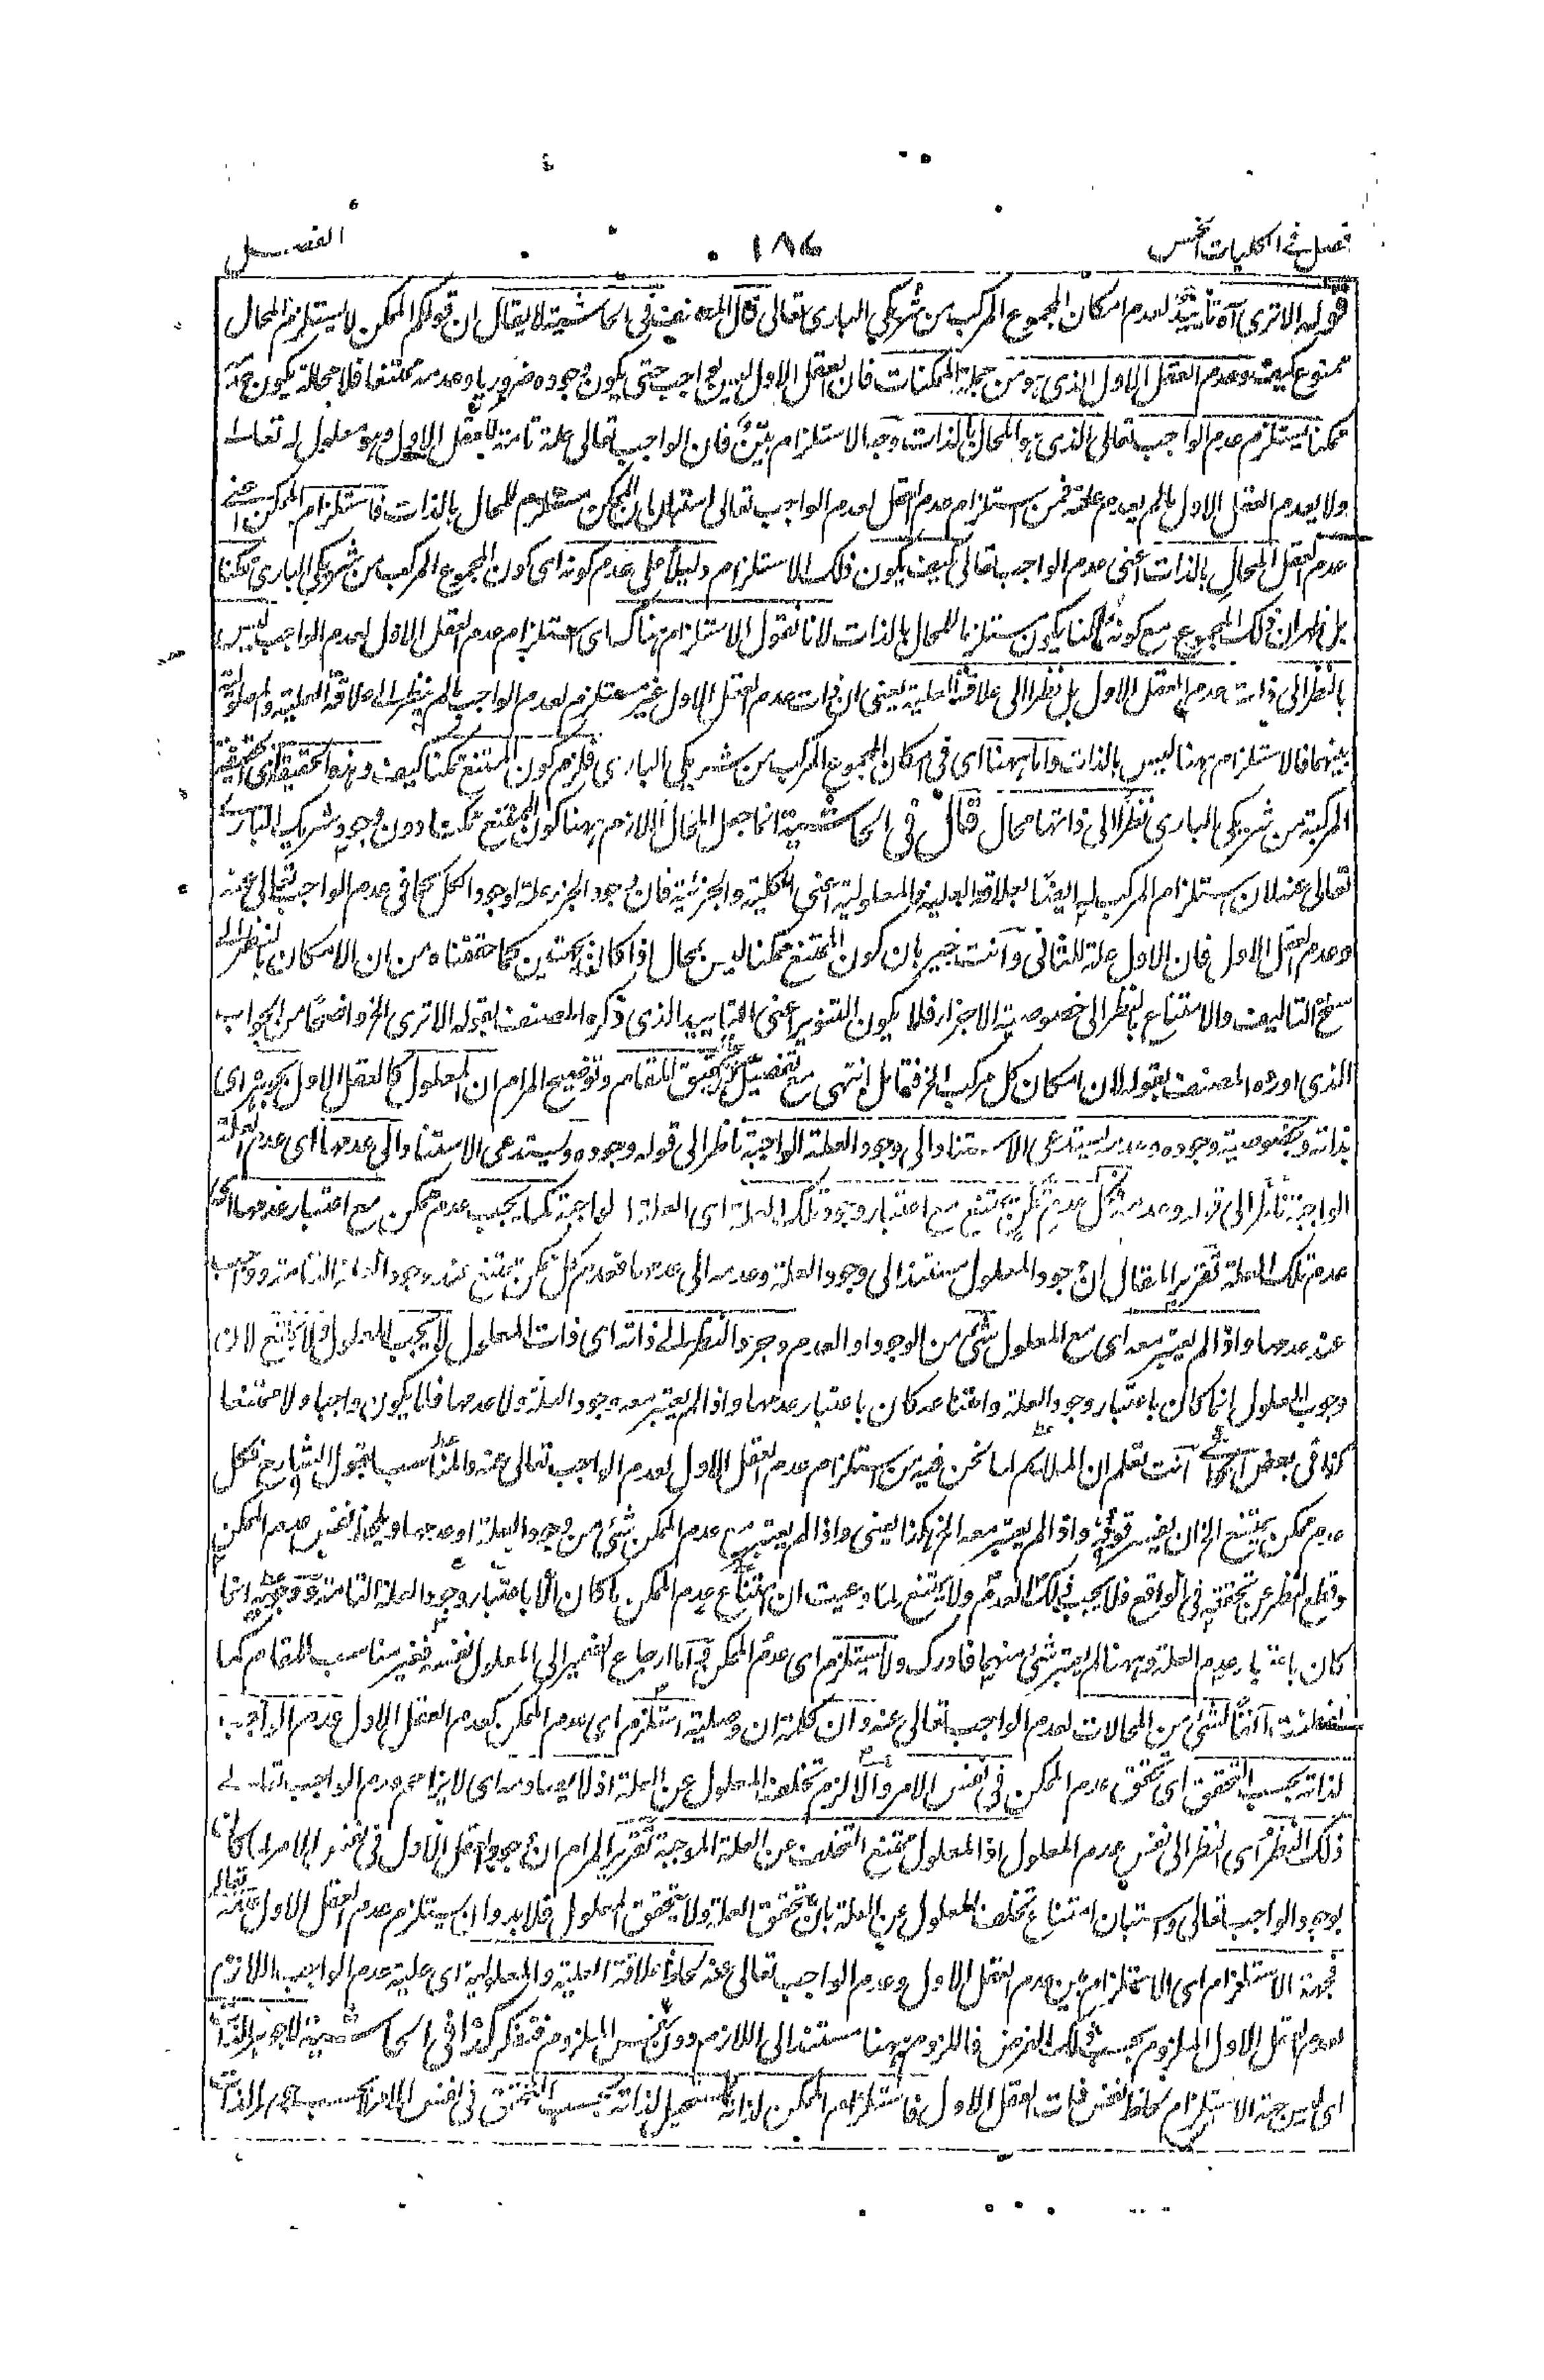 فصل فى الكليات الخمس
١٨٦
الفصل
قوله الا ترى آه تأييد لعدم امكان المجموع المركب من شريكي البارى تعالى قال المصنف فى الحاشية لا يقال ان قولكم الممكن لا يستلزم المحال
ممنوع كيف وعدم العقل الاول الذى هو من جملة الممكنات فان العقل الاول ليس بواجب حتى يكون وجوده ضروريا وعدمه ممتنعا فلا محالة يكون عدمه
ممكنا يستلزم عدم الواجب تعالى الذى هو المحال بالذات وجه الاستلزام بيّن فان الواجب تعالى علة تامة للعقل الاول وهو معلول له تعالى
ولا يعدم العقل الاول ما لم يعدم علته فمن استلزام عدم العقل لعدم الواجب تعالى استبان ان الممكن مستلزم للمحال بالذات فاستلزام الممكن اعنى
عدم العقل المحال بالذات اعنى عدم الواجب تعالى كيف يكون ذلك الاستلزام دليلا على عدم كونه اى كون المجموع المركب من شريكي البارى ممكنا
بل ظهر ان ذلك المجموع مع كونه ممكنا يكون مستلزما للمحال بالذات لانا نقول الاستلزام هناك اى استلزام عدم العقل الاول لعدم الواجب ليس
بالنظر الى ذات عدم العقل الاول بل نظرا الى علاقة العلية يعنى ان ذات عدم العقل الاول غير مستلزم لعدم الواجب ما لم ينظر الى علاقة العلية والمعلولية
بينهما فالاستلزام ههنا ليس بالذات واما ههنا اى فى امكان المجموع المركب من شريكي البارى فلزم كون الممتنع ممكنا كيف وهذه الحقيقة اى الحقيقة
المركبة من شريكي البارى نظرا الى ذاتها محال قال فى الحاشية انما جعل المحال اللازم ههنا كون الممتنع ممكنا دون وجود شريك البارى
تعالى عنه لان استلزام المركب له ايضا بعلاقة العلية والمعلولية اعنى الكلية والجزئية فان وجود الجزء علة لوجود الكل كما فى عدم الواجب تعالى عنه
وعدم العقل الاول فان الاول علة للثانى وانت خبير بان كون الممتنع ممكنا ليس بمحال اذا كانا بجهتين كما حققناه من ان الامكان بالنظر الى
سنخ التاليف والامتناع بالنظر الى خصوصية الاجزاء فلا يكون التنوير اعنى التاييد الذى ذكره المصنف بقوله الا ترى الخ واضحا من الجواب
الذى اورده المصنف بقوله لان امكان كل مركب الخ فتامل انتهى مع تحقيق المقام وتوضيح المرام ان المعلول كالعقل الاول بجوهره اى
بذاته وبخصوصية وجوده وعدمه يستدعى الاستناد الى وجود العلة الواجبة ناظر الى قوله وجوده ويستدعى الاستناد الى عدمها اى عدم العلة
الواجبة ناظر الى قوله وعدمه فكل عدم ممكن يمتنع مع اعتبار وجود تلك العلة اى العلة الواجبة كما يجب عدم ممكن مع اعتبار عدمها اى
عدم تلك العلة تقرير المقال ان وجود المعلول مستند الى وجود العلة وعدمه الى عدمها فعدم كل ممكن يمتنع عند وجود العلة التامة ووجب
عند عدمها واذا لم يعتبر معه اى مع المعلول شئ من الوجود او العدم وجرد النظر الى ذاته اى ذات المعلول لا يجب المعلول ولا يمتنع لان
وجوب المعلول انما كان باعتبار وجود العلة وامتناعه كان باعتبار عدمها واذا لم يعتبر معه وجود العلة ولا عدمها فلا يكون واجبا ولا ممتنعا
كذا فى بعض الحواشى انت تعلم ان الملائم لما نحن فيه من استلزام عدم العقل الاول لعدم الواجب تعالى عنه والمناسب لقول الشارح فكل
عدم ممكن يمتنع الخ ان يفسر قوله واذا لم يعتبر معه الخ هكذا يعنى واذا لم يعتبر مع عدم الممكن شئ من وجود العلة او عدمها ويلحظ نفس عدم الممكن
وقطع النظر عن تحققه فى الواقع فلا يجب ذلك العدم ولا يمتنع لما وعيت ان امتناع عدم الممكن ما كان الا باعتبار وجود العلة التامة ووجوبه انما
كان باعتبار عدم العلة وههنا لم يعتبر شئ منهما فادرك ولا يستلزم اى عدم الممكن فيه اما ارجاع الضمير الى المعلول نفسه فغير مناسب للمقام كما
آنفا لشئ من المحالات لعدم الواجب تعالى عنه وان كلمة ان وصلية استلزم اى عدم الممكن كعدم العقل الاول عدم الواجب
لذاته بحسب التحقق اى تحقق عدم الممكن فى نفس الامر والا لزم تخلف المعلول عن العلة اى لا يزاحم عدم الواجب تعالى
ذلك النظر اى النظر الى نفس عدم المعلول اذ المعلول ممتنع التخلف عن العلة الموجبة تقرير المرام ان وجود العقل الاول فى نفس الامر لما كان
بوجود الواجب تعالى واستبان امتناع تخلف المعلول عن العلة بان تحقق العلة ولا يتحقق المعلول فلا بد وان يستلزم عدم العقل الاول عدمه تعالى
فجهة الاستلزام اى الاستلزام بين عدم العقل الاول وعدم الواجب تعالى عنه لحاظ علاقة العلية والمعلولية اى علية عدم الواجب اللازم
لعدم العقل الاول الملزوم بحسب ذلك الفرض فاللزوم ههنا مستند الى اللازم دون نفس الملزوم فتفكر كذا فى الحاشية لا جوهر الذات
اى ليس جهة الاستلزام لحاظ نفس ذات العقل الاول فاستلزام الممكن لذاته المستحيل لذاته بحسب التحقق فى نفس الامر لا بحسب جوهر الذات